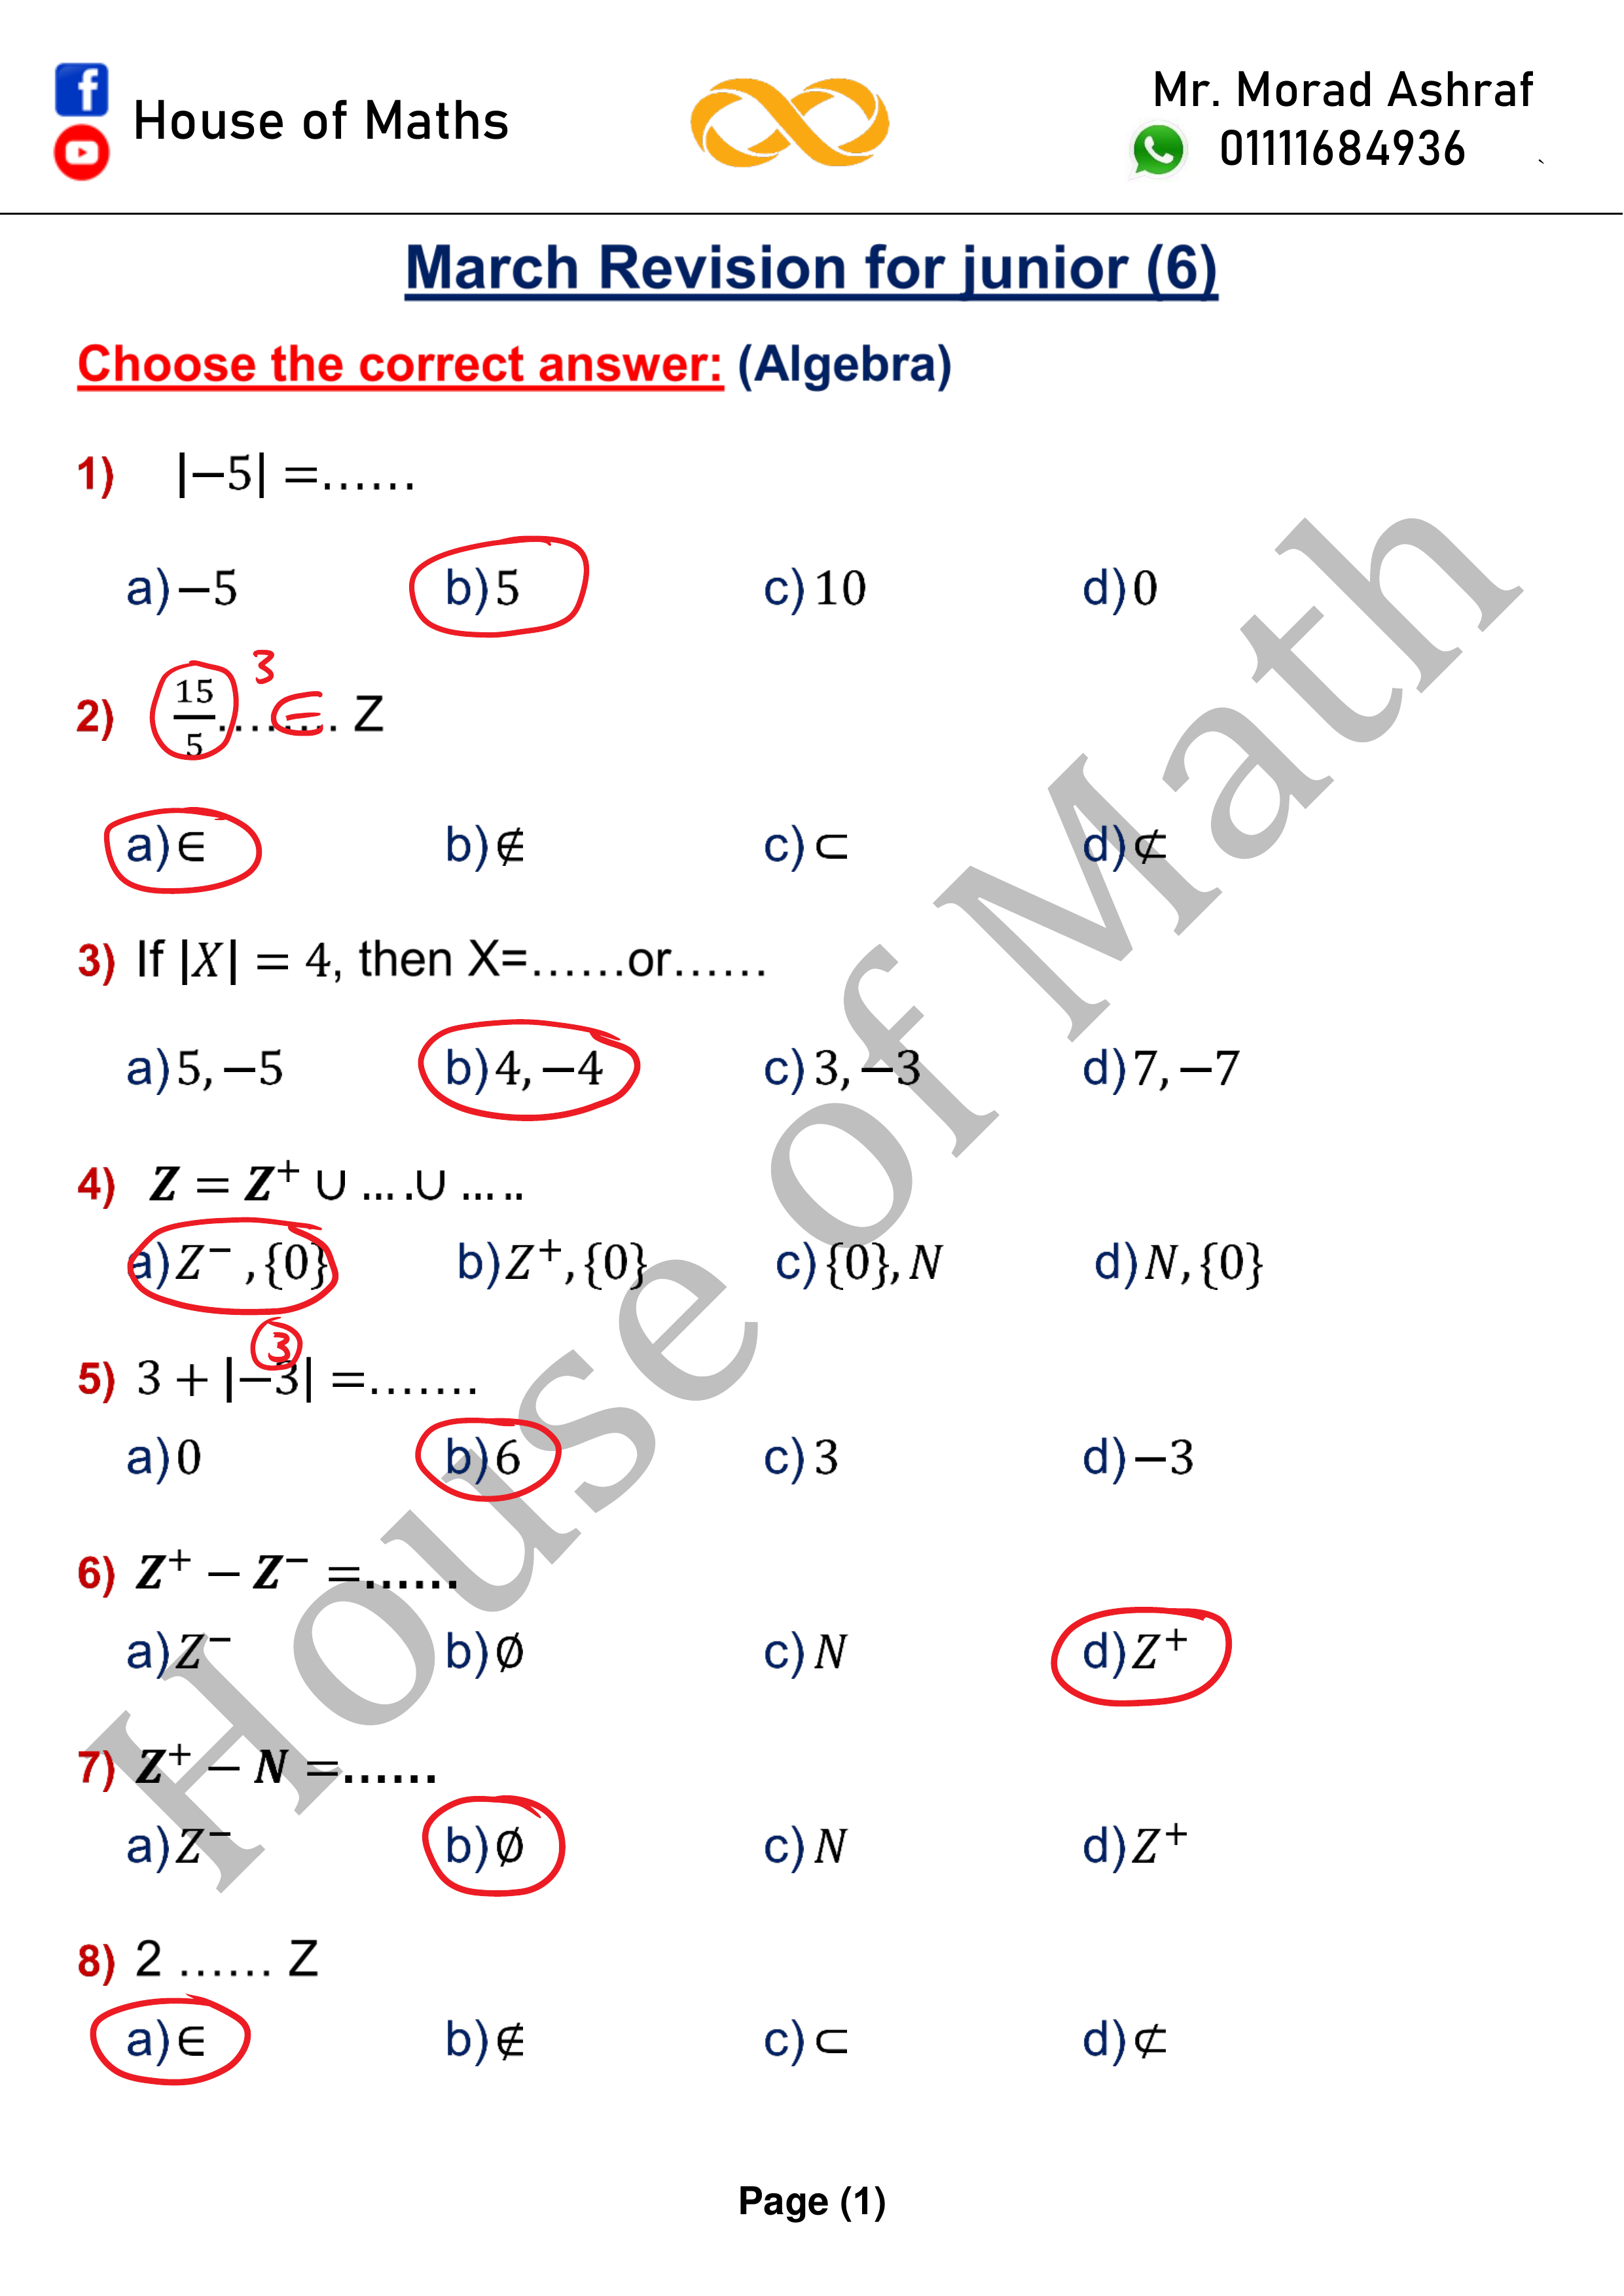 House of Maths
Mr. Morad Ashraf
01111684936
March Revision for junior (6)
Choose the correct answer: (Algebra)
1) |−5| =......
a) −5 b) 5 c) 10 d) 0
3
2) 15/5 ........ Z ∈
a) ∈ b) ∉ c) ⊂ d) ⊄
3) If |X| = 4, then X=......or......
a) 5, −5 b) 4, −4 c) 3, −3 d) 7, −7
4) Z = Z⁺ ∪ ... .∪ ... ..
a) Z⁻ , {0} b) Z⁺, {0} c) {0}, N d) N, {0}
3
5) 3 + |−3| =.......
a) 0 b) 6 c) 3 d) −3
6) Z⁺ − Z⁻ =......
a) Z⁻ b) ∅ c) N d) Z⁺
7) Z⁺ − N =......
a) Z⁻ b) ∅ c) N d) Z⁺
8) 2 ...... Z
a) ∈ b) ∉ c) ⊂ d) ⊄
House of Math
Page (1)